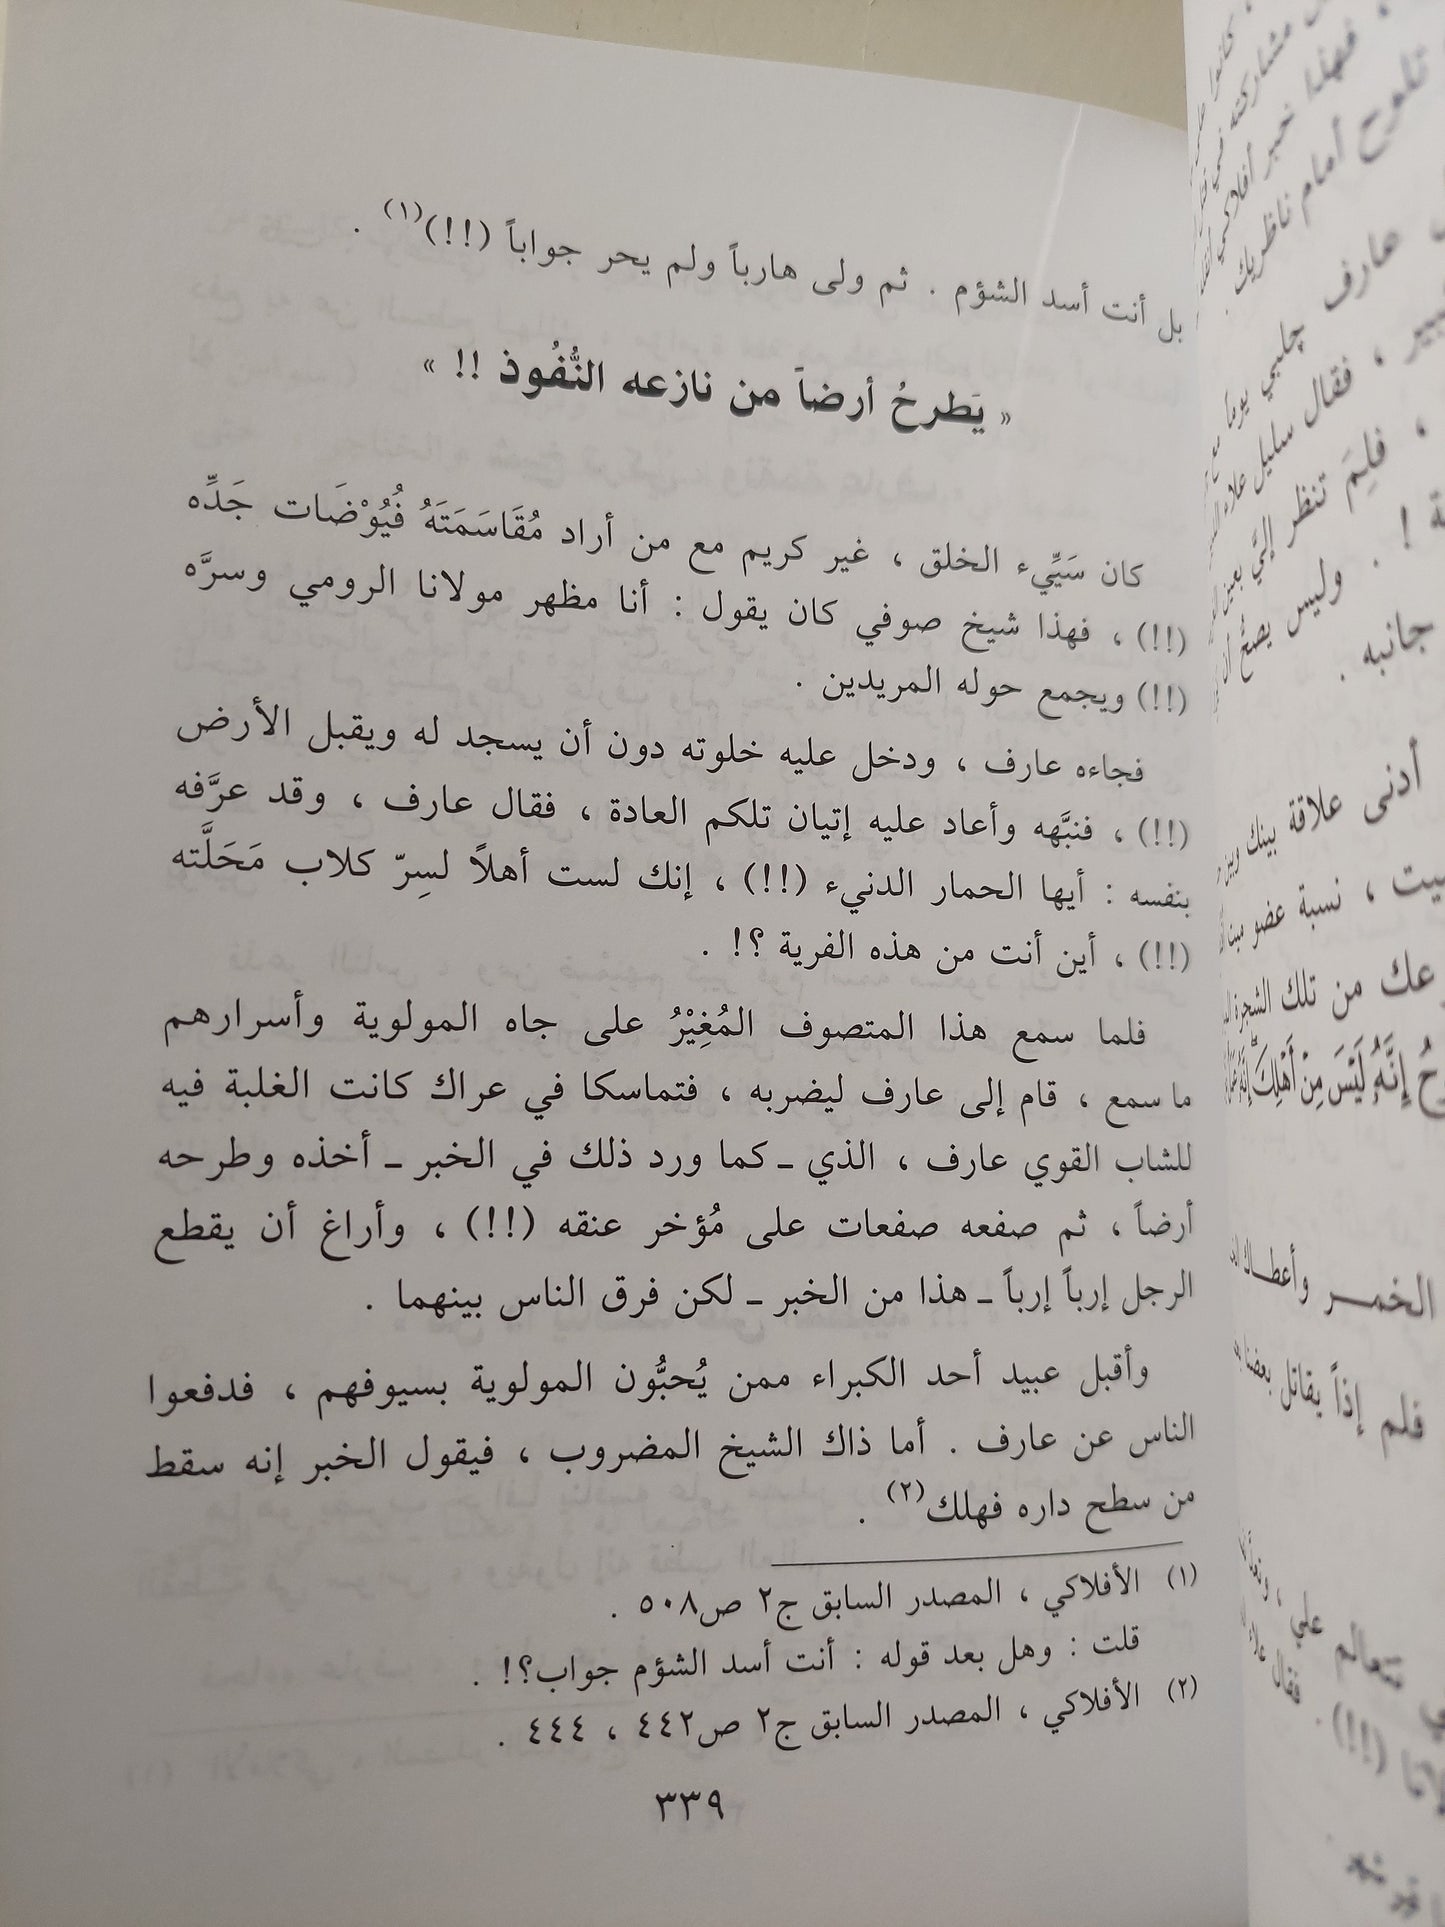 بل أنت أسد الشؤم . ثم ولى هارباً ولم يحر جواباً (!!)(١) .
« يَطرحُ أرضاً من نازعه النُّفُوذ !! »
كان سَيِّيء الخلق ، غير كريم مع من أراد مُقَاسَمَتَهُ فُيُوْضَات جَدِّه
(!!) ، فهذا شيخ صوفي كان يقول : أنا مظهر مولانا الرومي وسرَّه
(!!) ويجمع حوله المريدين .
فجاءه عارف ، ودخل عليه خلوته دون أن يسجد له ويقبل الأرض
(!!) ، فنبَّهه وأعاد عليه إتيان تلكم العادة ، فقال عارف ، وقد عرَّفه
بنفسه : أيها الحمار الدنيء (!!) ، إنك لست أهلاً لسِرّ كلاب مَحَلَّته
(!!) ، أين أنت من هذه الفرية ؟! .
فلما سمع هذا المتصوف المُغِيْرُ على جاه المولوية وأسرارهم
ما سمع ، قام إلى عارف ليضربه ، فتماسكا في عراك كانت الغلبة فيه
للشاب القوي عارف ، الذي ـ كما ورد ذلك في الخبر ـ أخذه وطرحه
أرضاً ، ثم صفعه صفعات على مُؤخر عنقه (!!) ، وأراغ أن يقطع
الرجل إرباً إرباً ـ هذا من الخبر ـ لكن فرق الناس بينهما .
وأقبل عبيد أحد الكبراء ممن يُحبُّون المولوية بسيوفهم ، فدفعوا
الناس عن عارف . أما ذاك الشيخ المضروب ، فيقول الخبر إنه سقط
من سطح داره فهلك(٢) .
(١) الأفلاكي ، المصدر السابق ج٢ ص٥٠٨ .
قلت : وهل بعد قوله : أنت أسد الشؤم جواب؟! .
(٢) الأفلاكي ، المصدر السابق ج٢ ص٤٤٢ ، ٤٤٤ .
٣٣٩
تلوح أمام ناظريك
عارف چلبي يوماً
، فقال سليل علاء
، فلِمَ تنظر إليَّ بعين
! . وليس يصحُّ أن
جانبه .
أدنى علاقة بينك وبين
، نسبة عضو ميت
من تلك الشجرة
إِنَّهُ لَيْسَ مِنْ أَهْلِكَ
الخمر وأعطاك
فلم إذاً يقاتل بعضنا